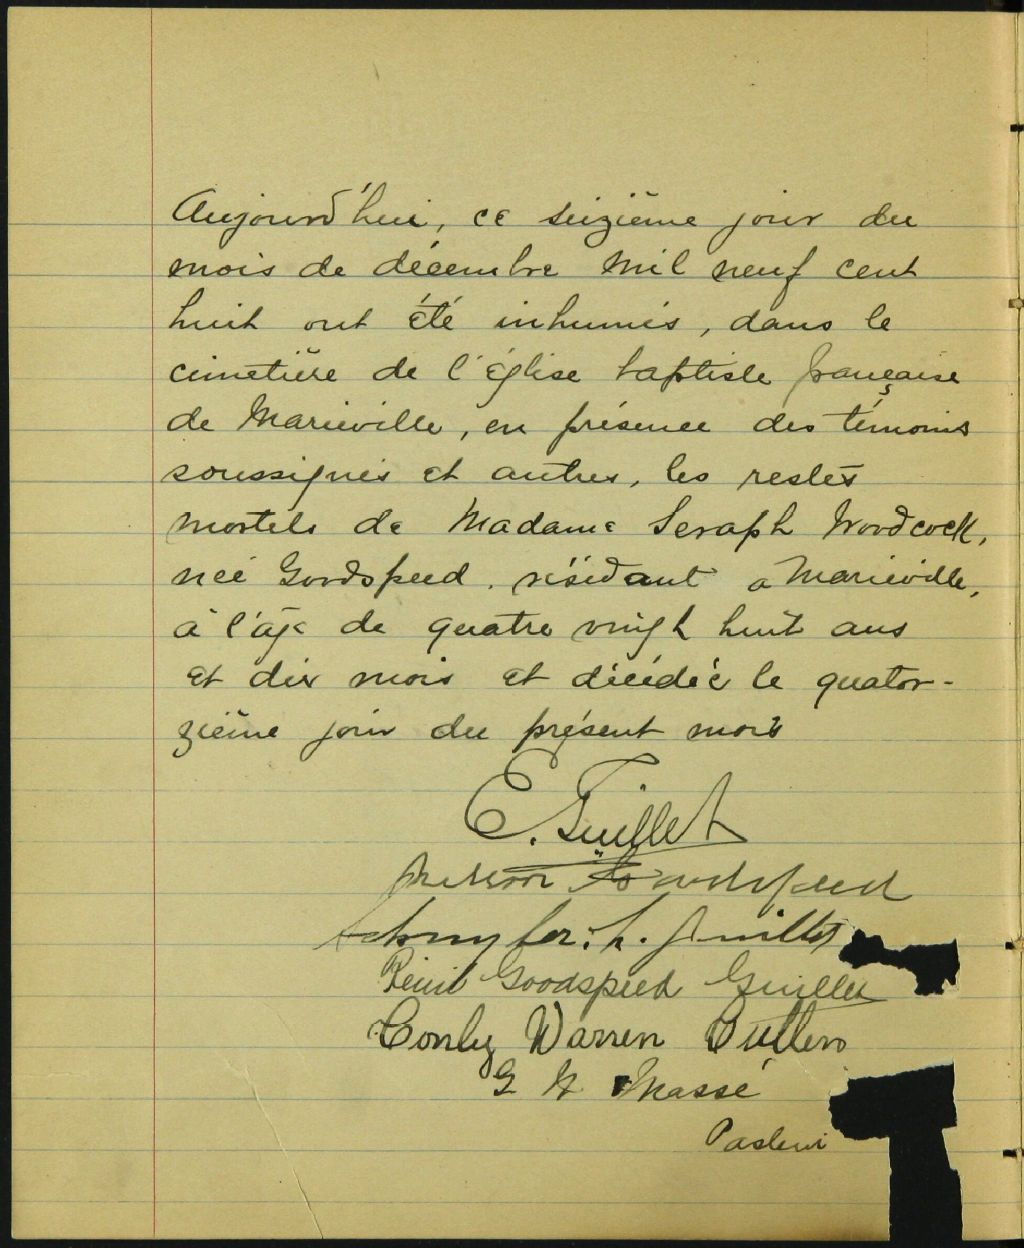 Aujourd'hui, ce seizième jour du
mois de décembre mil neuf cent
huit ont été inhumés, dans le
cimetière de l'église baptiste française
de Marieville, en présence des témoins
soussignés et autres, les restes
mortels de Madame Seraph Woodcock,
née Goodspeed, résidant a Marieville,
à l'âge de quatre vingt huit ans
et dix mois et décédée le quator-
zième jour du présent mois
E. Guillet
Goodspeed
Guillet
Goodspeed Guillet
Warren Butler
G N Massé
Pasteur